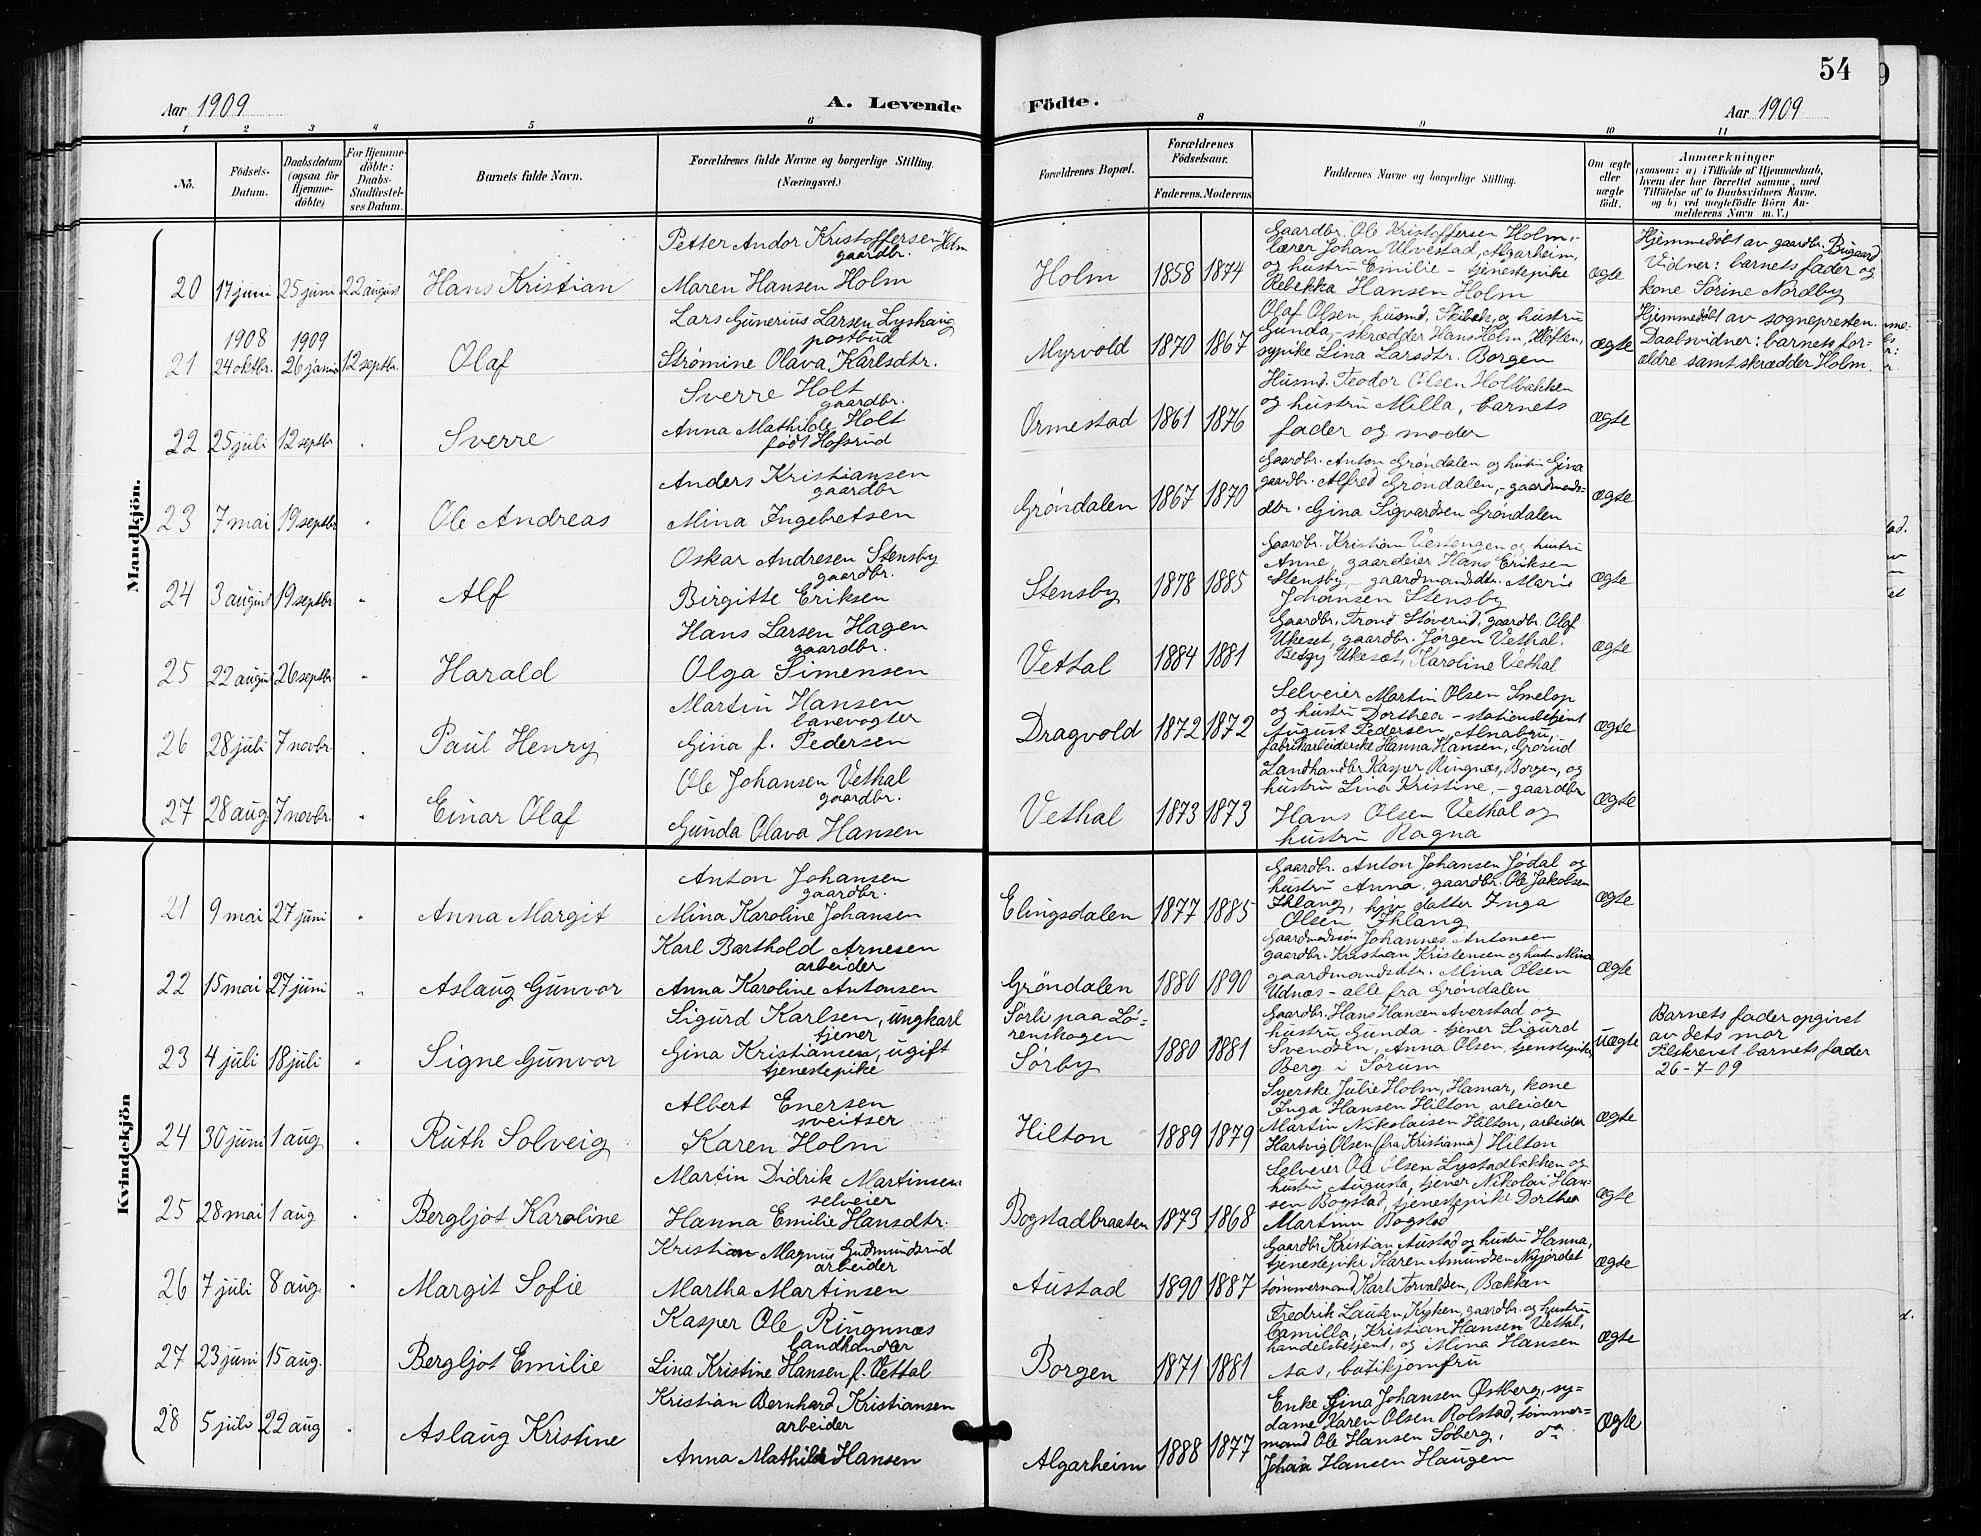 54
Aar 1909
A. Levende Födte.
Aar 1909
1 2 3 4 5 6 8 9 10 11
No.
Födsels-Datum.
Daabsdatum (ogsaa for Hjemme-döbte)
For Hjemme-döbte: Daabs-Stadfæstel-ses Datum.
Barnets fulde Navn.
Forældrenes fulde Navne og borgerlige Stilling.
(Næringsvei.)
Forældrenes Bopæl.
Forældrenes Födselsaar.
Faderens. Moderens
Faddernes Navne og borgerlige Stilling.
Om ægte eller uægte födt.
Anmærkninger
(saasom: a) i Tilfælde af Hjemmedaab, hvem der har forrettet samme, med Tilföielse af to Daabsvidners Navne. og b) ved uegtefödte Börn Anmelderens Navn m. V.)
Mandkjön.
20 17 juni 25 juni 22 august Hans Kristian
Petter Andor Kristoffersen Holm
gaardbr.
Maren Hansen Holm
Holm 1858 1874
Gaardbr. Ole Kristoffersen Holm,-
lærer Johan Ulvestad, Algarheim,
og hustru Emilie - tjenestepike
Rebekka Hansen Holm
ægte
Hjemmedøbt av gaardbr. Bugaard
Vidner: barnets fader og
kone Sørine Nordby
1908 1909
21 24 oktbr. 26 januar 12 septbr. Olaf
Lars Gunerius Larsen Lyshaug
postbud
Strømine Olava Karlsdtr.
Myrvold 1870 1867
Olaf Olsen, husmd. Skibak, og hustru
Gunda, - skrædder Hans Holm, Kløften,
sypike Lina Larsdtr. Borgen
ægte
Hjemmedøbt av sognepresten.
Daabsvidner: barnets for-
ældre samt skrædder Holm
22 25 juli 12 septbr " Sverre
Sverre Holt
gaardbr.
Anna Mathilde Holt
født Hofsrud
Ormestad 1861 1876
Husmd. Teodor Olsen Holtbakken
og hustru Milla, barnets
fader og moder
ægte
23 7 mai 19 septbr " Ole Andreas
Anders Kristiansen
gaardbr
Mina Ingebretsen
Grøndalen 1867 1870
Gaardbr. Anton Grøndalen og hustru Gina
gaardbr. Alfred Grøndalen, - gaardmands-
dtr. Gina Sigvardsen Grøndalen
ægte
24 3 august 19 septbr " Alf
Oskar Andresen Stensby
gaardbr.
Birgitte Eriksen
Stensby 1878 1885
Gaardbr. Kristian Vestengen og hustru
Anne, gaardeier Hans Eriksen
Stensby, - gaardmandsdtr. Marie
Johansen Stensby
ægte
25 22 august 26 septbr " Harald
Hans Larsen Hagen
gaardbr.
Olga Simensen
Vethal 1884 1881
Gaardbr. Trond Støverud, gaardbr. Olaf
Ukeset, gaardbr. Jørgen Vethal.
Betzy Ukesæt, Karoline Vethal
ægte
26 28 juli 7 novbr. " Paul Henry
Martin Hansen
banevogter
Gina f. Pedersen
Dragvold 1872 1872
Selveier Martin Olsen Smelop
og hustru Dorthea - stationsbetjent
August Pedersen, Alnabru,
fabrikarbeiderske Hanna Hansen, Grorud
ægte
27 28 aug 7 novbr. " Einar Olaf
Ole Johansen Vethal
gaardbr.
Gunda Olava Hansen
Vethal 1873 1873
Landhandler Kasper Ringnæs, Borgen, og
hustru Lina Kristine, - gaardbr
Hans Olsen Vethal og
hustru Ragna
ægte
Kvindekjön
21 9 mai 27 juni " Anna Margit
Anton Johansen
gaardbr.
Mina Karoline Johansen
Elingsdalen 1877 1885
Gaardbr. Anton Johansen Jødal og
hustru Anna. gaardbr. Ole Jakobsen
Ihlang, hjv. datter Inga
Olsen Ihlang
ægte
22 15 mai 27 juni " Aslaug Gunvor
Karl Barthold Arnesen
arbeider
Anna Karoline Antonsen
Grøndalen 1880 1890
Gaardmandssøn Johannes Antonsen
gaardbr. Kristian Kristensen og hustru Mina
gaardmandsdtr. Mina Olsen
Udnæs - alle fra Grøndalen
ægte
23 4 juli 18 juli " Signe Gunvor
Sigurd Karlsen, ungkarl
tjener
Gina Kristiansen, ugift
tjenestepike
Sørli paa Lø-
renskogen
Sørby
1880 1881
Gaardbr. Hans Hansen Averstad og
hustru Gunda - tjener Sigurd
Svendsen, Anna Olsen, tjenstepike,
Berg i Sørum
uægte
Barnets fader opgivet
av dets mor
Tilskrevet barnets fader
26-7-09
24 30 juni 1 aug " Ruth Solveig
Albert Enersen
sveitser
Karen Holm
Hilton 1889 1879
Syerske Julie Holm, Hamar, kone
Inga Hansen Hilton, arbeider
Martin Nikolaisen Hilton, arbeider
Hartvig Olsen (fra Kristiania) Hilton
ægte
25 28 mai 1 aug " Bergljot Karoline
Martin Didrik Martinsen
selveier
Hanna Emilie Hansdtr.
Bogstadbraaten 1873 1868
Selveier Ole Olsen Lystadbakken og
hustru Augusta, tjener Nikolai Han-
sen Bogstad, tjenestepike Dorthea
Martinu Bogstad
ægte
26 7 juli 8 aug. " Margit Sofie
Kristian Magnus Gudmundsrud
arbeider
Martha Martinsen
Austad 1890 1887
Gaardbr Kristian Austad og hustru Hanna,
tjenestepike Karen Amundsen Nyjordet
tømmermand Karl Torvaldsen, Bakken
ægte
27 23 juni 15 aug. Bergljot Emilie
Kasper Ole Ringnæs
landhandler
Lina Kristine Hansen f. Vettal
Borgen 1871 1881
Fredrik Lauten, Kyken, gaardbr. og hustru
Camilla, Kristian Hansen Vettal,
handelsbetjent, og Mina Hansen
Aas, butikjomfru
ægte
28 5 juli 22 aug " Aslaug Kristine
Kristian Bernhard Kristiansen
arbeider
Anna Mathilde Hansen
Algarheim 1888 1877
Enke Gina Johansen Østberg, sy-
dame Karen Olsen Rolstad, tømmer-
mand Ole Hansen Soberg, do
Johan Hansen Haugen
ægte